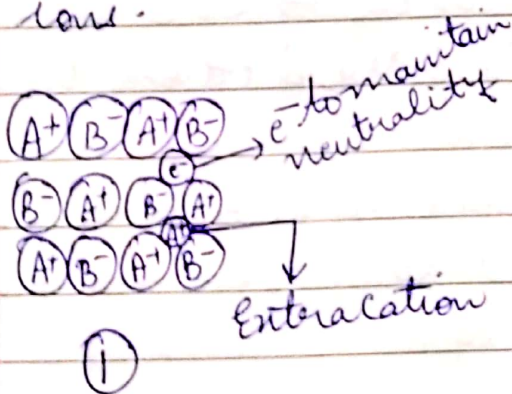 ions.
A+ B- A+ B-
e- to maintain
neutrality
e-
B- A+ B- A+
A+
A+ B- A+ B-
Extra cation
1